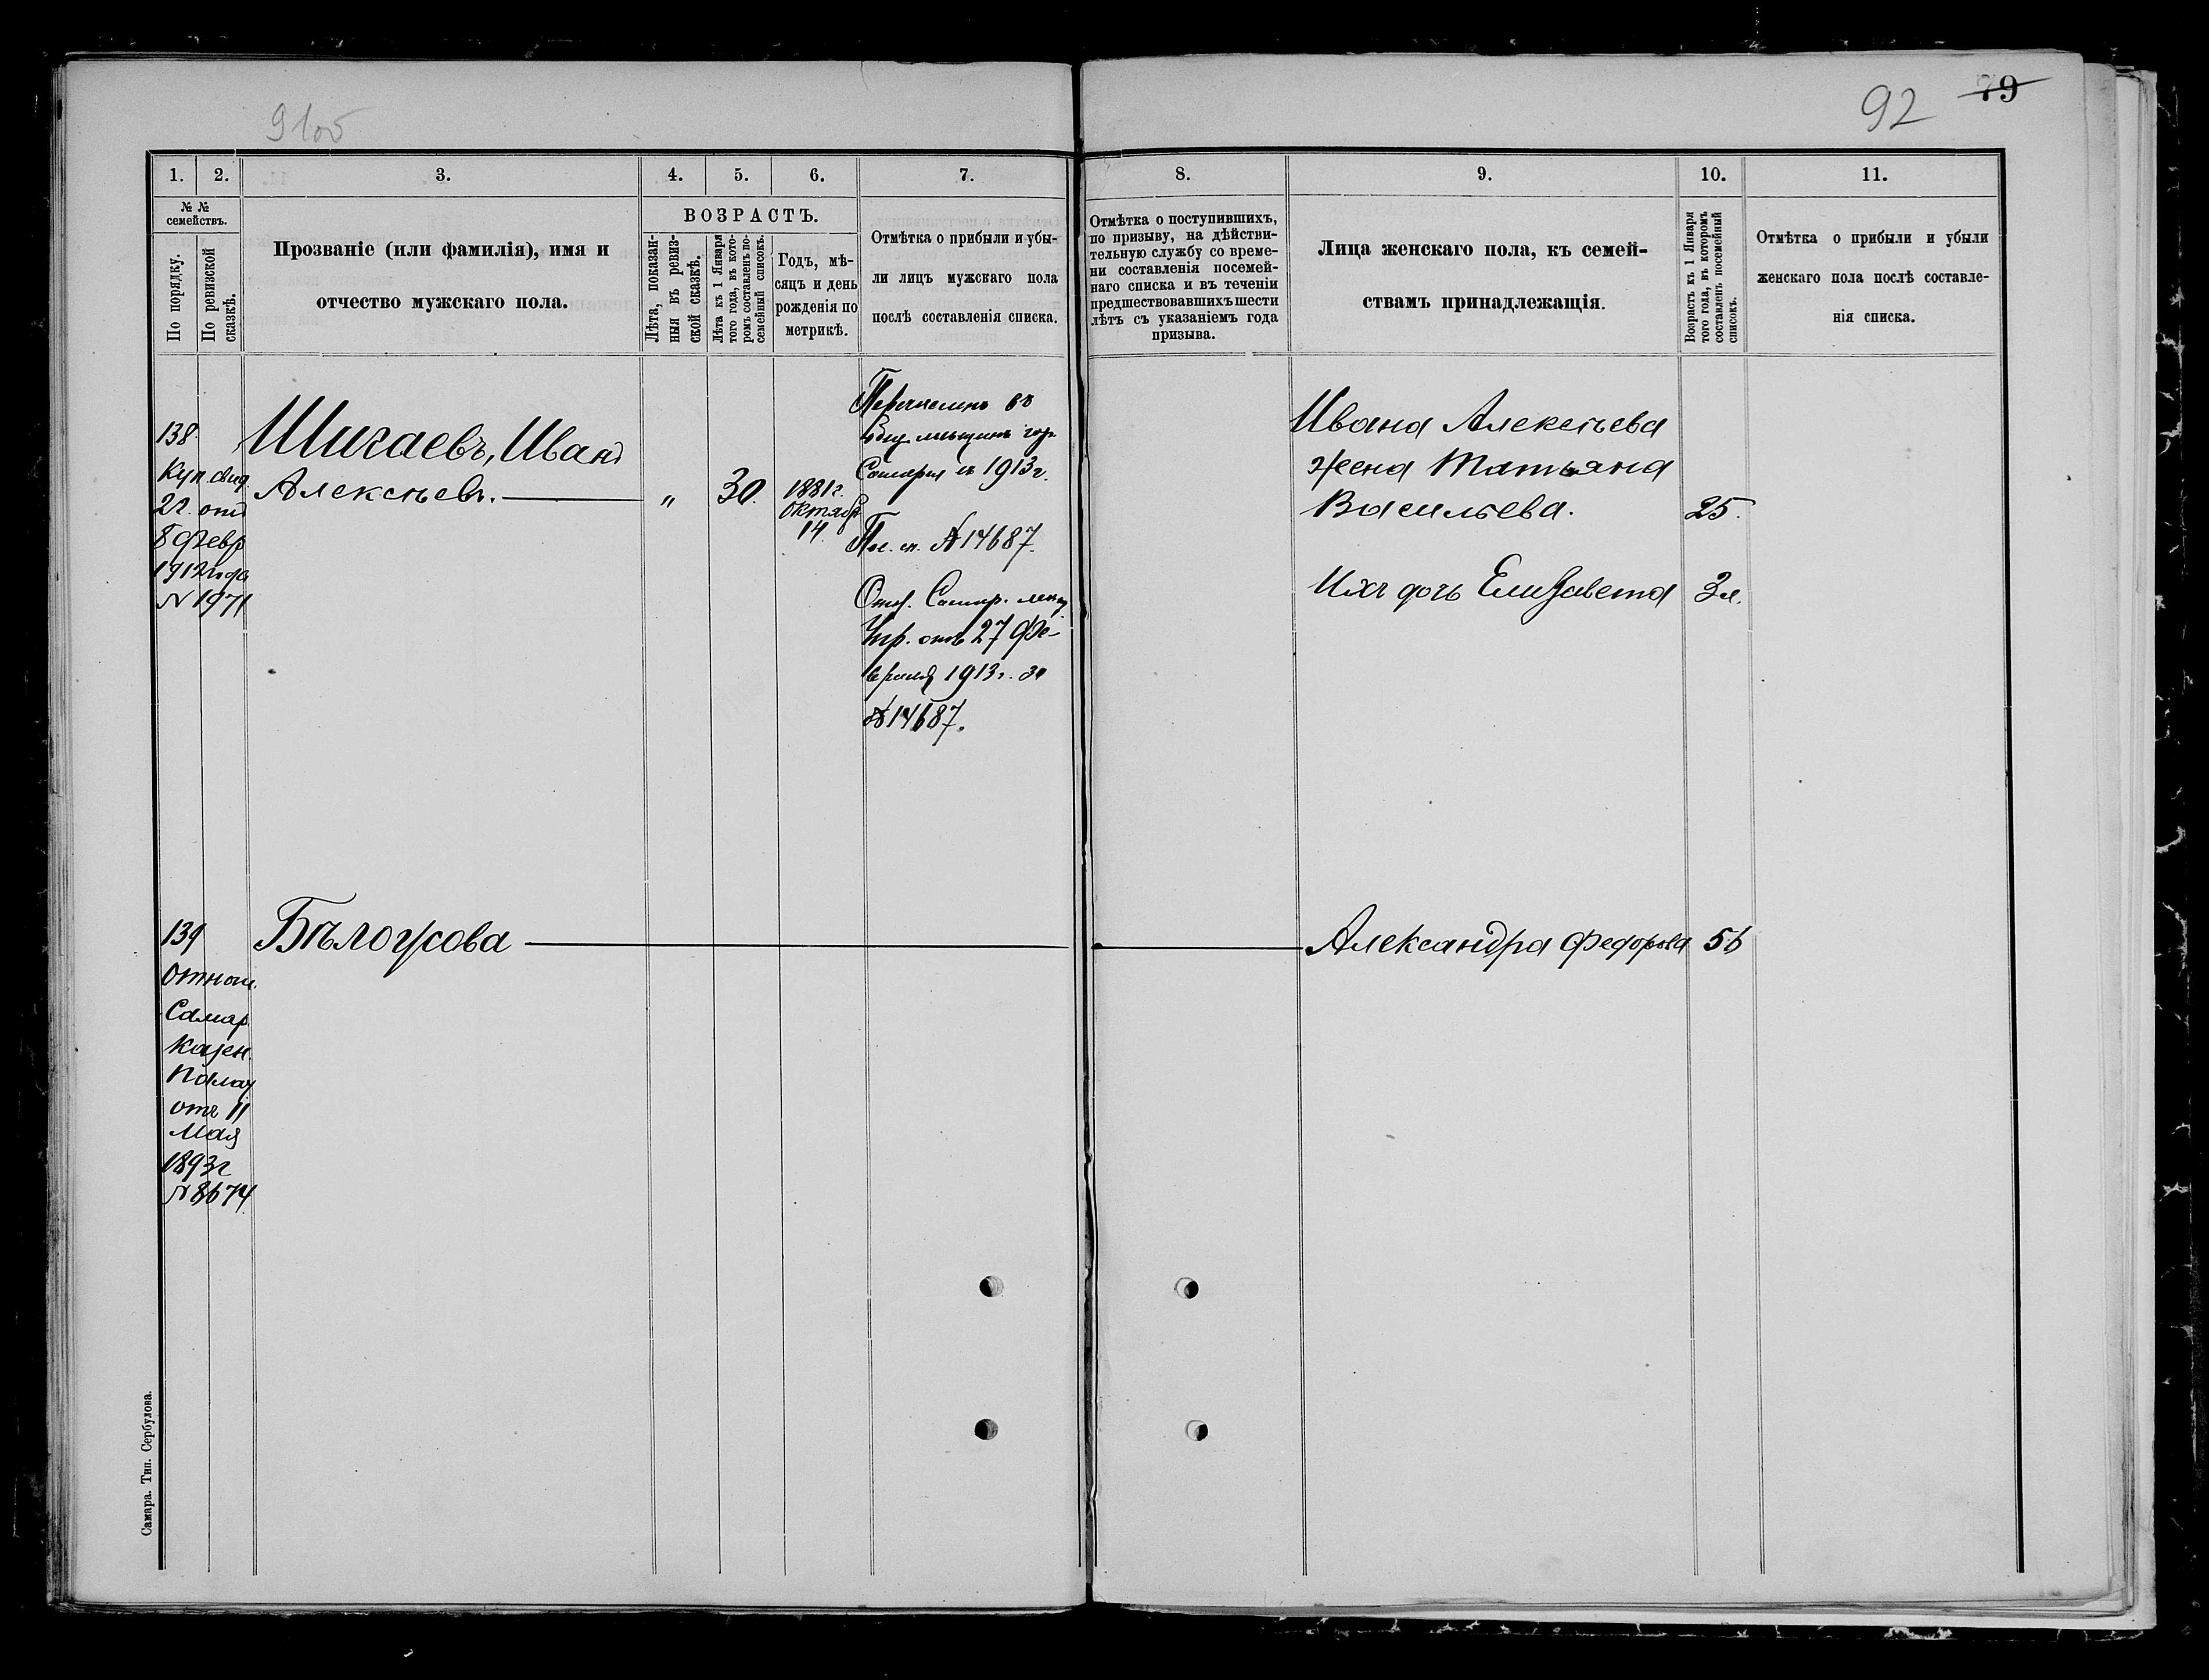 91об
92 79
1. 2. 3. 4. 5. 6. 7. 8. 9. 10. 11.
№ №
семействъ.
По порядку.
По ревизской
сказкѣ.
Прозваніе (или фамилія), имя и
отчество мужскаго пола.
ВОЗРАСТЪ.
Лѣта, показан-
ныя въ ревиз-
ской сказкѣ.
Лѣта къ 1 Января
того года, въ кото-
ромъ составленъ по-
семейный списокъ.
Годъ, мѣ-
сяцъ и день
рожденія по
метрикѣ.
Отмѣтка о прибыли и убы-
ли лицъ мужскаго пола
послѣ составленія списка.
Отмѣтка о поступившихъ,
по призыву, на дѣйстви-
тельную службу со време-
ни составленія посемей-
наго списка и въ теченіи
предшествовавшихъ шести
лѣтъ съ указаніемъ года
призыва.
Лица женскаго пола, къ семей-
ствамъ принадлежащія.
Возрастъ къ 1 Января
того года, въ которомъ
составленъ посемейный
списокъ.
Отмѣтка о прибыли и убыли
женскаго пола послѣ составле-
нія списка.
138
Куп. свид.
2 г. отъ
8 Февр
1912 года
№ 1971
Шигаевъ, Иванъ
Алексѣевъ. „ 30. 1881 г.
Октября
14.
Перечисленъ въ
общ. мѣщанъ гор.
Самары съ 1913 г.
№ 14687.
Отн. Самар. мѣщ.
Упр. отъ 27 Фе-
враля 1913 г. за
№ 14687.
Ивана Алексѣева
жена Татьяна
Васильева. 25.
Ихъ дочь Елизавета 3 л.
139 Бѣлоусова Александра Федорова 56
Отнош.
Самар.
Казен.
Палат
отъ 11
Мая
1893 г
№ 8674
Самара. Тип. Сербулова.